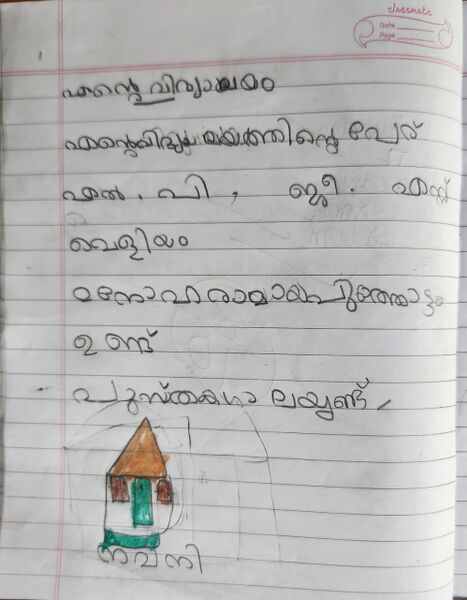 classmate
Date
Page
എന്റെ വിദ്യാലയം
എന്റെവിദ്യാലയത്തിന്റെ പേര്
എൽ. പി, ജി. എസ്
വെളിയം
മനോഹരാമായപൂത്തോട്ടം
ഉണ്ട്
പുസ്തകശാലയുണ്ട്
നവനി